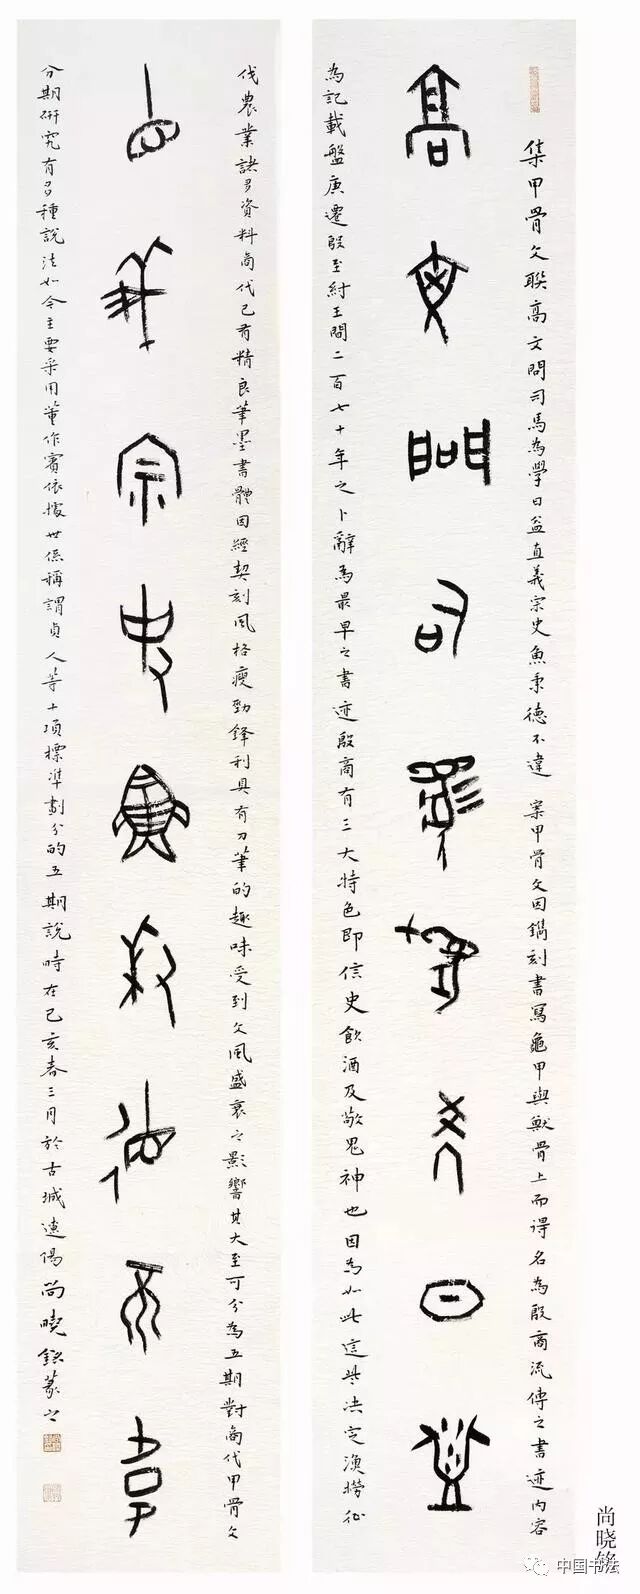 集甲骨文聯高文問司馬為學日益直義宗史魚秉德不違 案甲骨文因鐫刻書寫龜甲與獸骨上而得名為殷商流傳之書迹內容
高文問司馬為學日益
為記載盤庚遷殷至紂王間二百七十年之卜辭為最早之書迹殷商有三大特色即信史飲酒及敬鬼神也因為如此這些決定漁撈征
伐農業諸多資料商代已有精良筆墨書體因經契刻風格瘦勁鋒利具有刀筆的趣味受到文風盛衰之影響其大至可分為五期對商代甲骨文
直義宗史魚秉德不違
分期研究有多種說法如今主要采用董作賓依據世係稱謂貞人等十項標準劃分的五期說時在己亥春三月於古城遼陽尚曉銘篆之
尚晓铭
中国书法